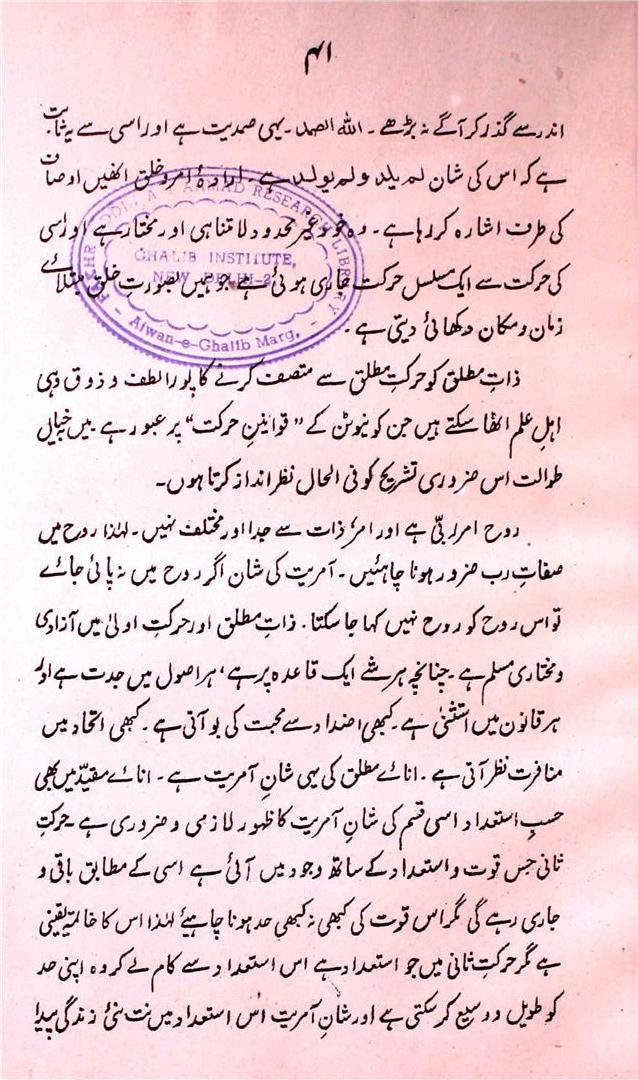 ۴۱
اندر سے گذر کر آگے نہ بڑھے۔ اللہ الصمد۔ یہی صمدیت ہے اور اسی سے یہ ثابت
ہے کہ اس کی شان لم یلد ولم یولد ہے۔ ارادۂ امر و خلق انھیں اوصاف
کی طرف اشارہ کر رہا ہے۔ وہ خود غیر محدود لا متناہی اور مختار ہے اور اسی
کی حرکت سے ایک مسلسل حرکت جاری ہوئی ہے جو ہمیں بصورتِ خلق مبتلائے
زمان و مکان دکھائی دیتی ہے۔
ذاتِ مطلق کو حرکتِ مطلق سے متصف کرنے کا پورا لطف و ذوق وہی
اہلِ علم اٹھا سکتے ہیں جن کو نیوٹن کے "قوانینِ حرکت" پر عبور ہے میں بخیال
طوالت اس ضروری تشریح کو فی الحال نظر انداز کرتا ہوں۔
روح امر ربّی ہے اور امر، ذات سے جدا اور مختلف نہیں۔ لہٰذا روح میں
صفاتِ رب ضرور ہونا چاہئیں۔ آمریت کی شان اگر روح میں نہ پائی جائے
تو اس روح کو روح نہیں کہا جا سکتا۔ ذاتِ مطلق اور حرکتِ اولیٰ میں آزادی
و مختاری مسلم ہے۔ چنانچہ ہر شے ایک قاعدہ پر ہے، ہر اصول میں جدت ہے اور
ہر قانون میں استثنیٰ ہے۔ کبھی اضداد سے محبت کی بو آتی ہے۔ کبھی اتحاد میں
منافرت نظر آتی ہے۔ انائے مطلق کی یہی شانِ آمریت ہے۔ انائے مقیّد میں بھی
حسبِ استعداد اسی قسم کی شانِ آمریت کا ظہور لازمی و ضروری ہے۔ حرکتِ
ثانی جس قوت و استعداد کے ساتھ وجود میں آئی ہے اسی کے مطابق باقی و
جاری رہے گی مگر اس قوت کی کبھی نہ کبھی حد ہونا چاہیئے لہٰذا اس کا خاتمہ یقینی
ہے مگر حرکتِ ثانی میں جو استعداد ہے اس استعداد سے کام لے کر وہ اپنی حد
کو طویل و وسیع کر سکتی ہے اور شانِ آمریت اس استعداد میں نت نئی زندگی پیدا
FAKHRUDDIN ALI AHMAD RESEARCH LIBRARY
GHALIB INSTITUTE,
NEW DELHI-2
Aiwan-e-Ghalib Marg,